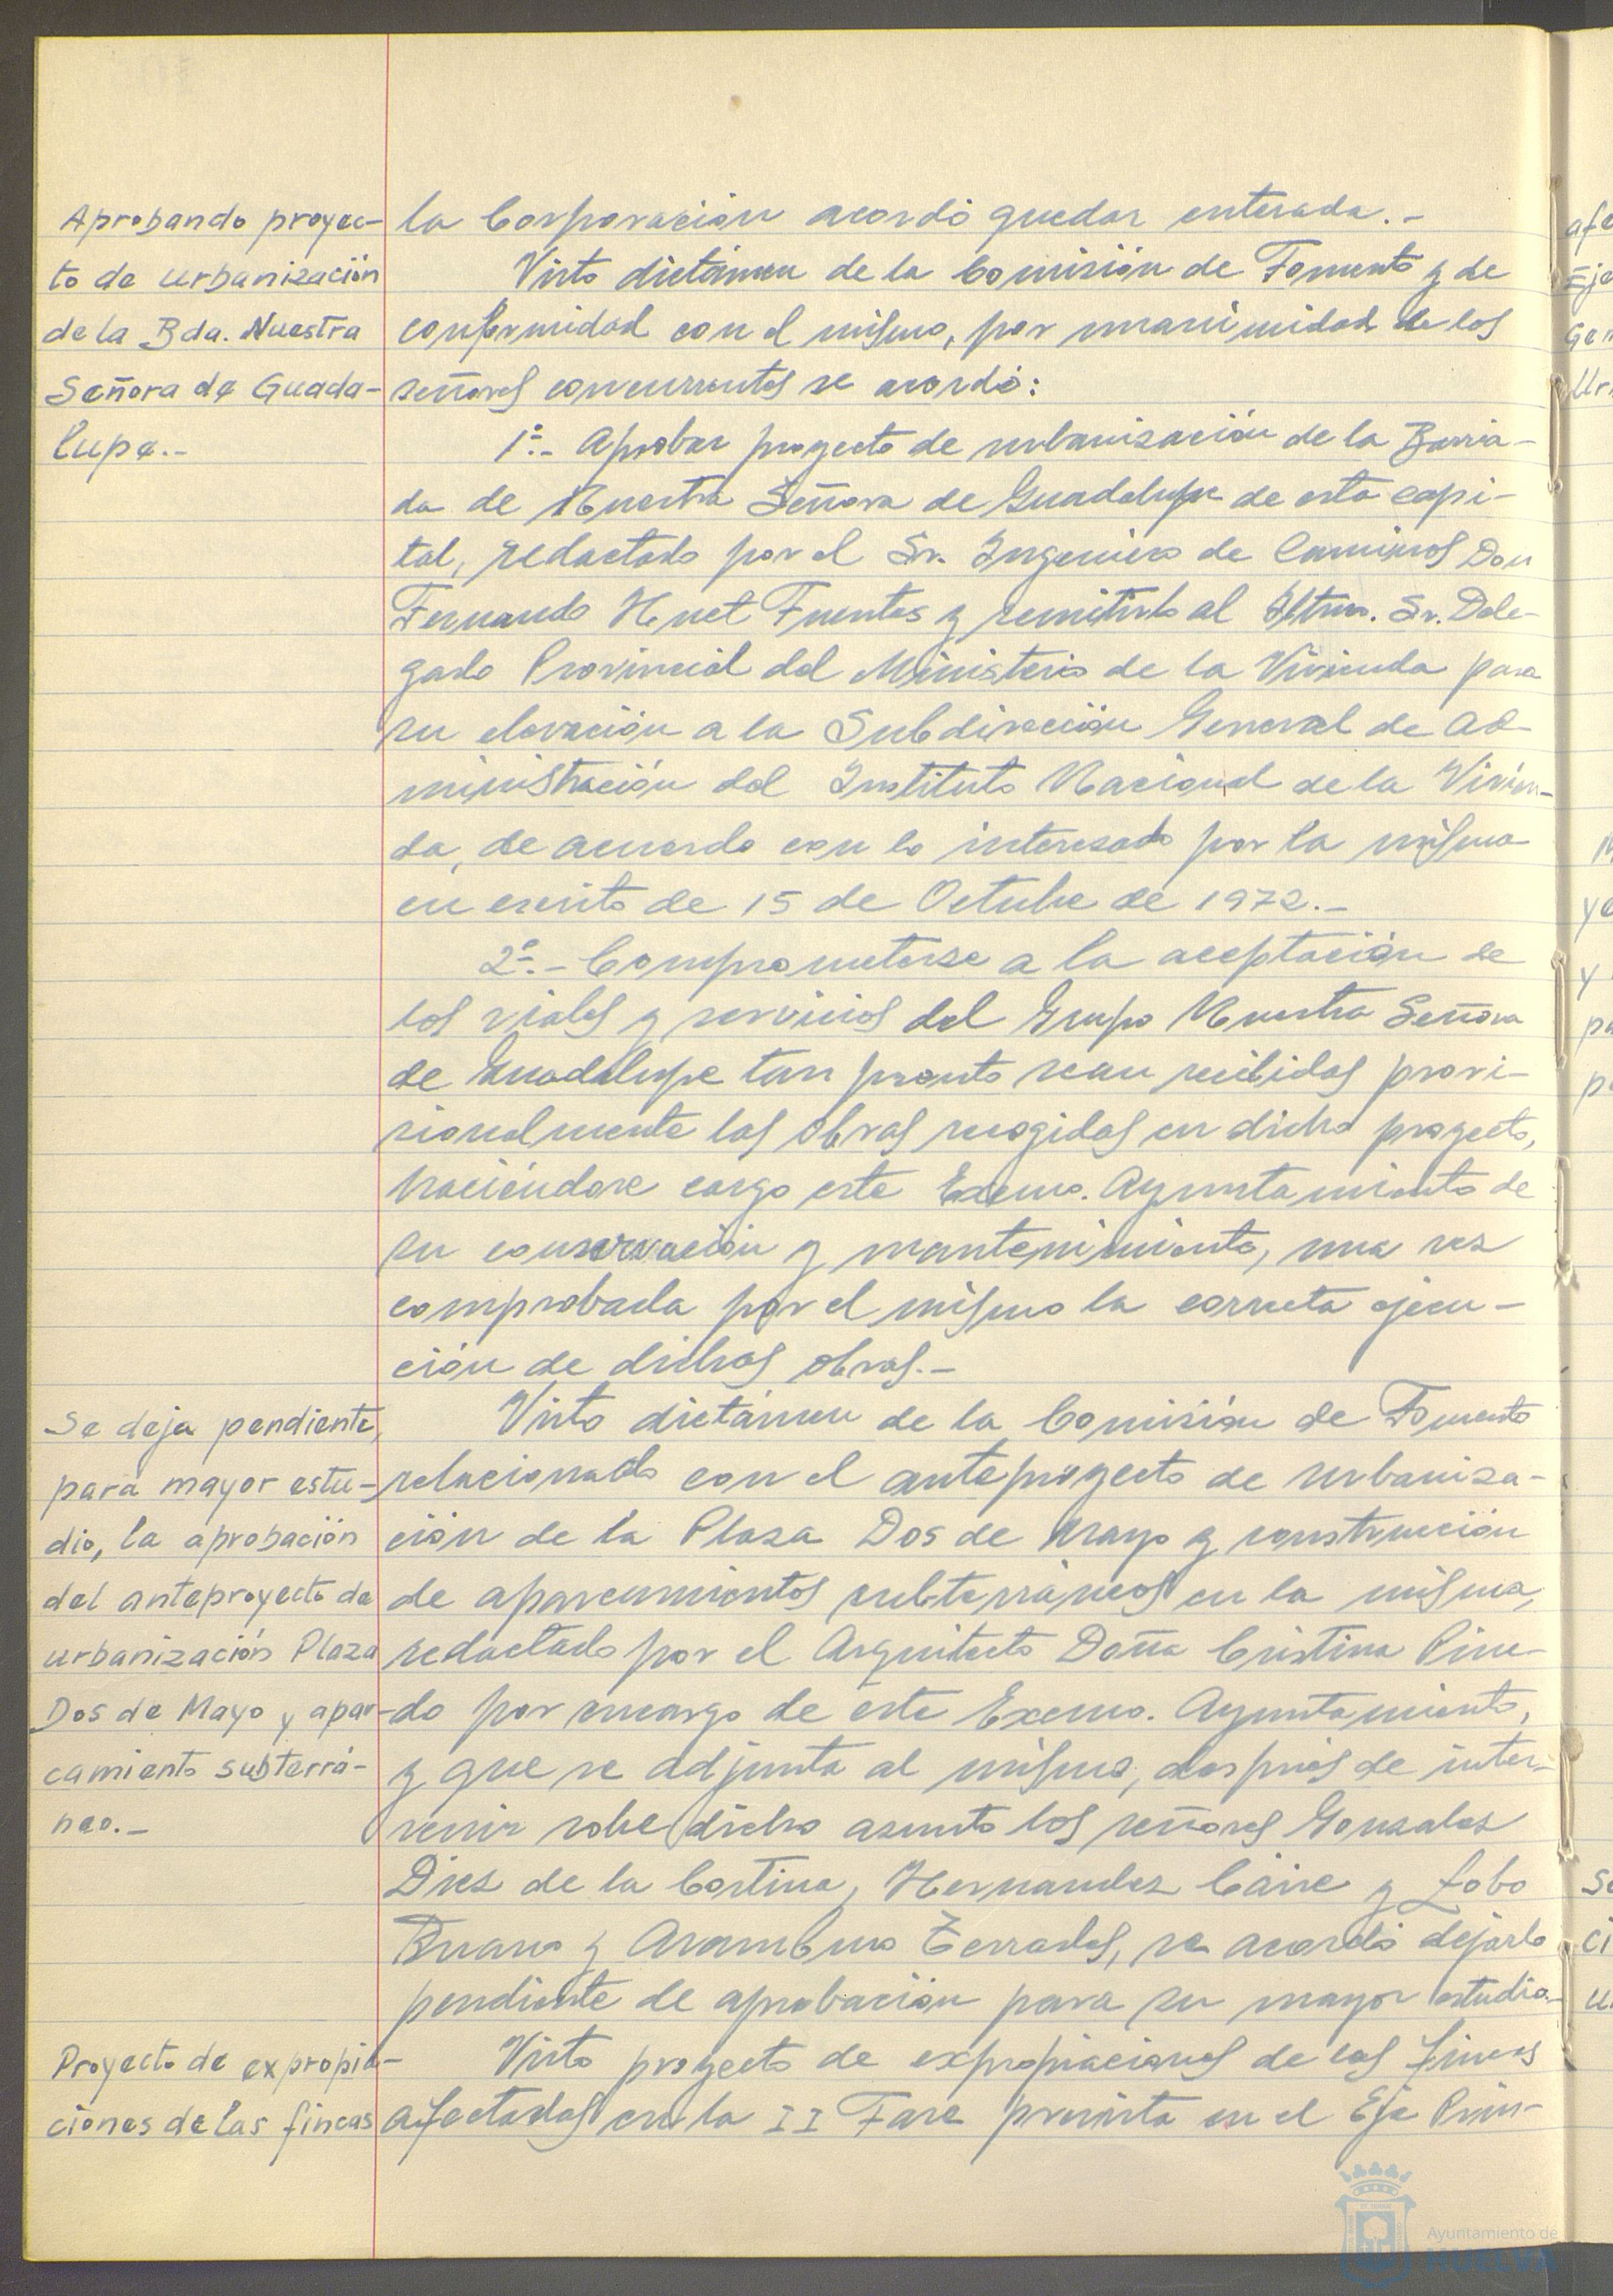 la Corporación acordó quedar enterada.-
Aprobando proyec-
to de urbanización
de la Bda. Nuestra
Señora de Guada-
lupe.-
Visto dictámen de la Comisión de Fomento y de
conformidad con el mismo, por unanimidad de los
señores concurrentes se acordó:
1º.- Aprobar proyecto de urbanización de la Barria-
da de Nuestra Señora de Guadalupe de esta capi-
tal, redactado por el Sr. Ingeniero de Caminos Don
Fernando Huet Fuentes y remitirlo al Iltmo. Sr. Dele-
gado Provincial del Ministerio de la Vivienda para
su elevación a la Subdirección General de Ad-
ministración del Instituto Nacional de la Vivien-
da, de acuerdo con lo interesado por la misma
en escrito de 15 de Octubre de 1972.-
2º.- Comprometerse a la aceptación de
los viales y servicios del Grupo Nuestra Señora
de Guadalupe tan pronto sean recibidas provi-
sionalmente las obras recogidas en dicho proyecto,
haciéndose cargo este Excmo. Ayuntamiento de
su conservación y mantenimiento, una vez
comprobada por el mismo la correcta ejecu-
ción de dichas obras.-
Se deja pendiente,
para mayor estu-
dio, la aprobación
del anteproyecto de
urbanización Plaza
Dos de Mayo y apar-
camiento subterrá-
neo.-
Visto dictámen de la Comisión de Fomento
relacionado con el anteproyecto de urbaniza-
ción de la Plaza Dos de Mayo y construcción
de aparcamientos subterráneos en la misma,
redactado por el Arquitecto Doña Cristina Pine-
do por encargo de este Excmo. Ayuntamiento,
y que se adjunta al mismo, después de inter-
venir sobre dicho asunto los señores Gonzalez
Diez de la Cortina, Hernandez Caire y Lobo
y Aramburo Terrades, se acordó dejarlo
pendiente de aprobación para su mayor estudio.-
Proyecto de expropia-
ciones de las fincas
Visto proyecto de expropiaciones de las fincas
afectadas en la II Fase prevista en el Eje Prin-
Ayuntamiento de
HUELVA